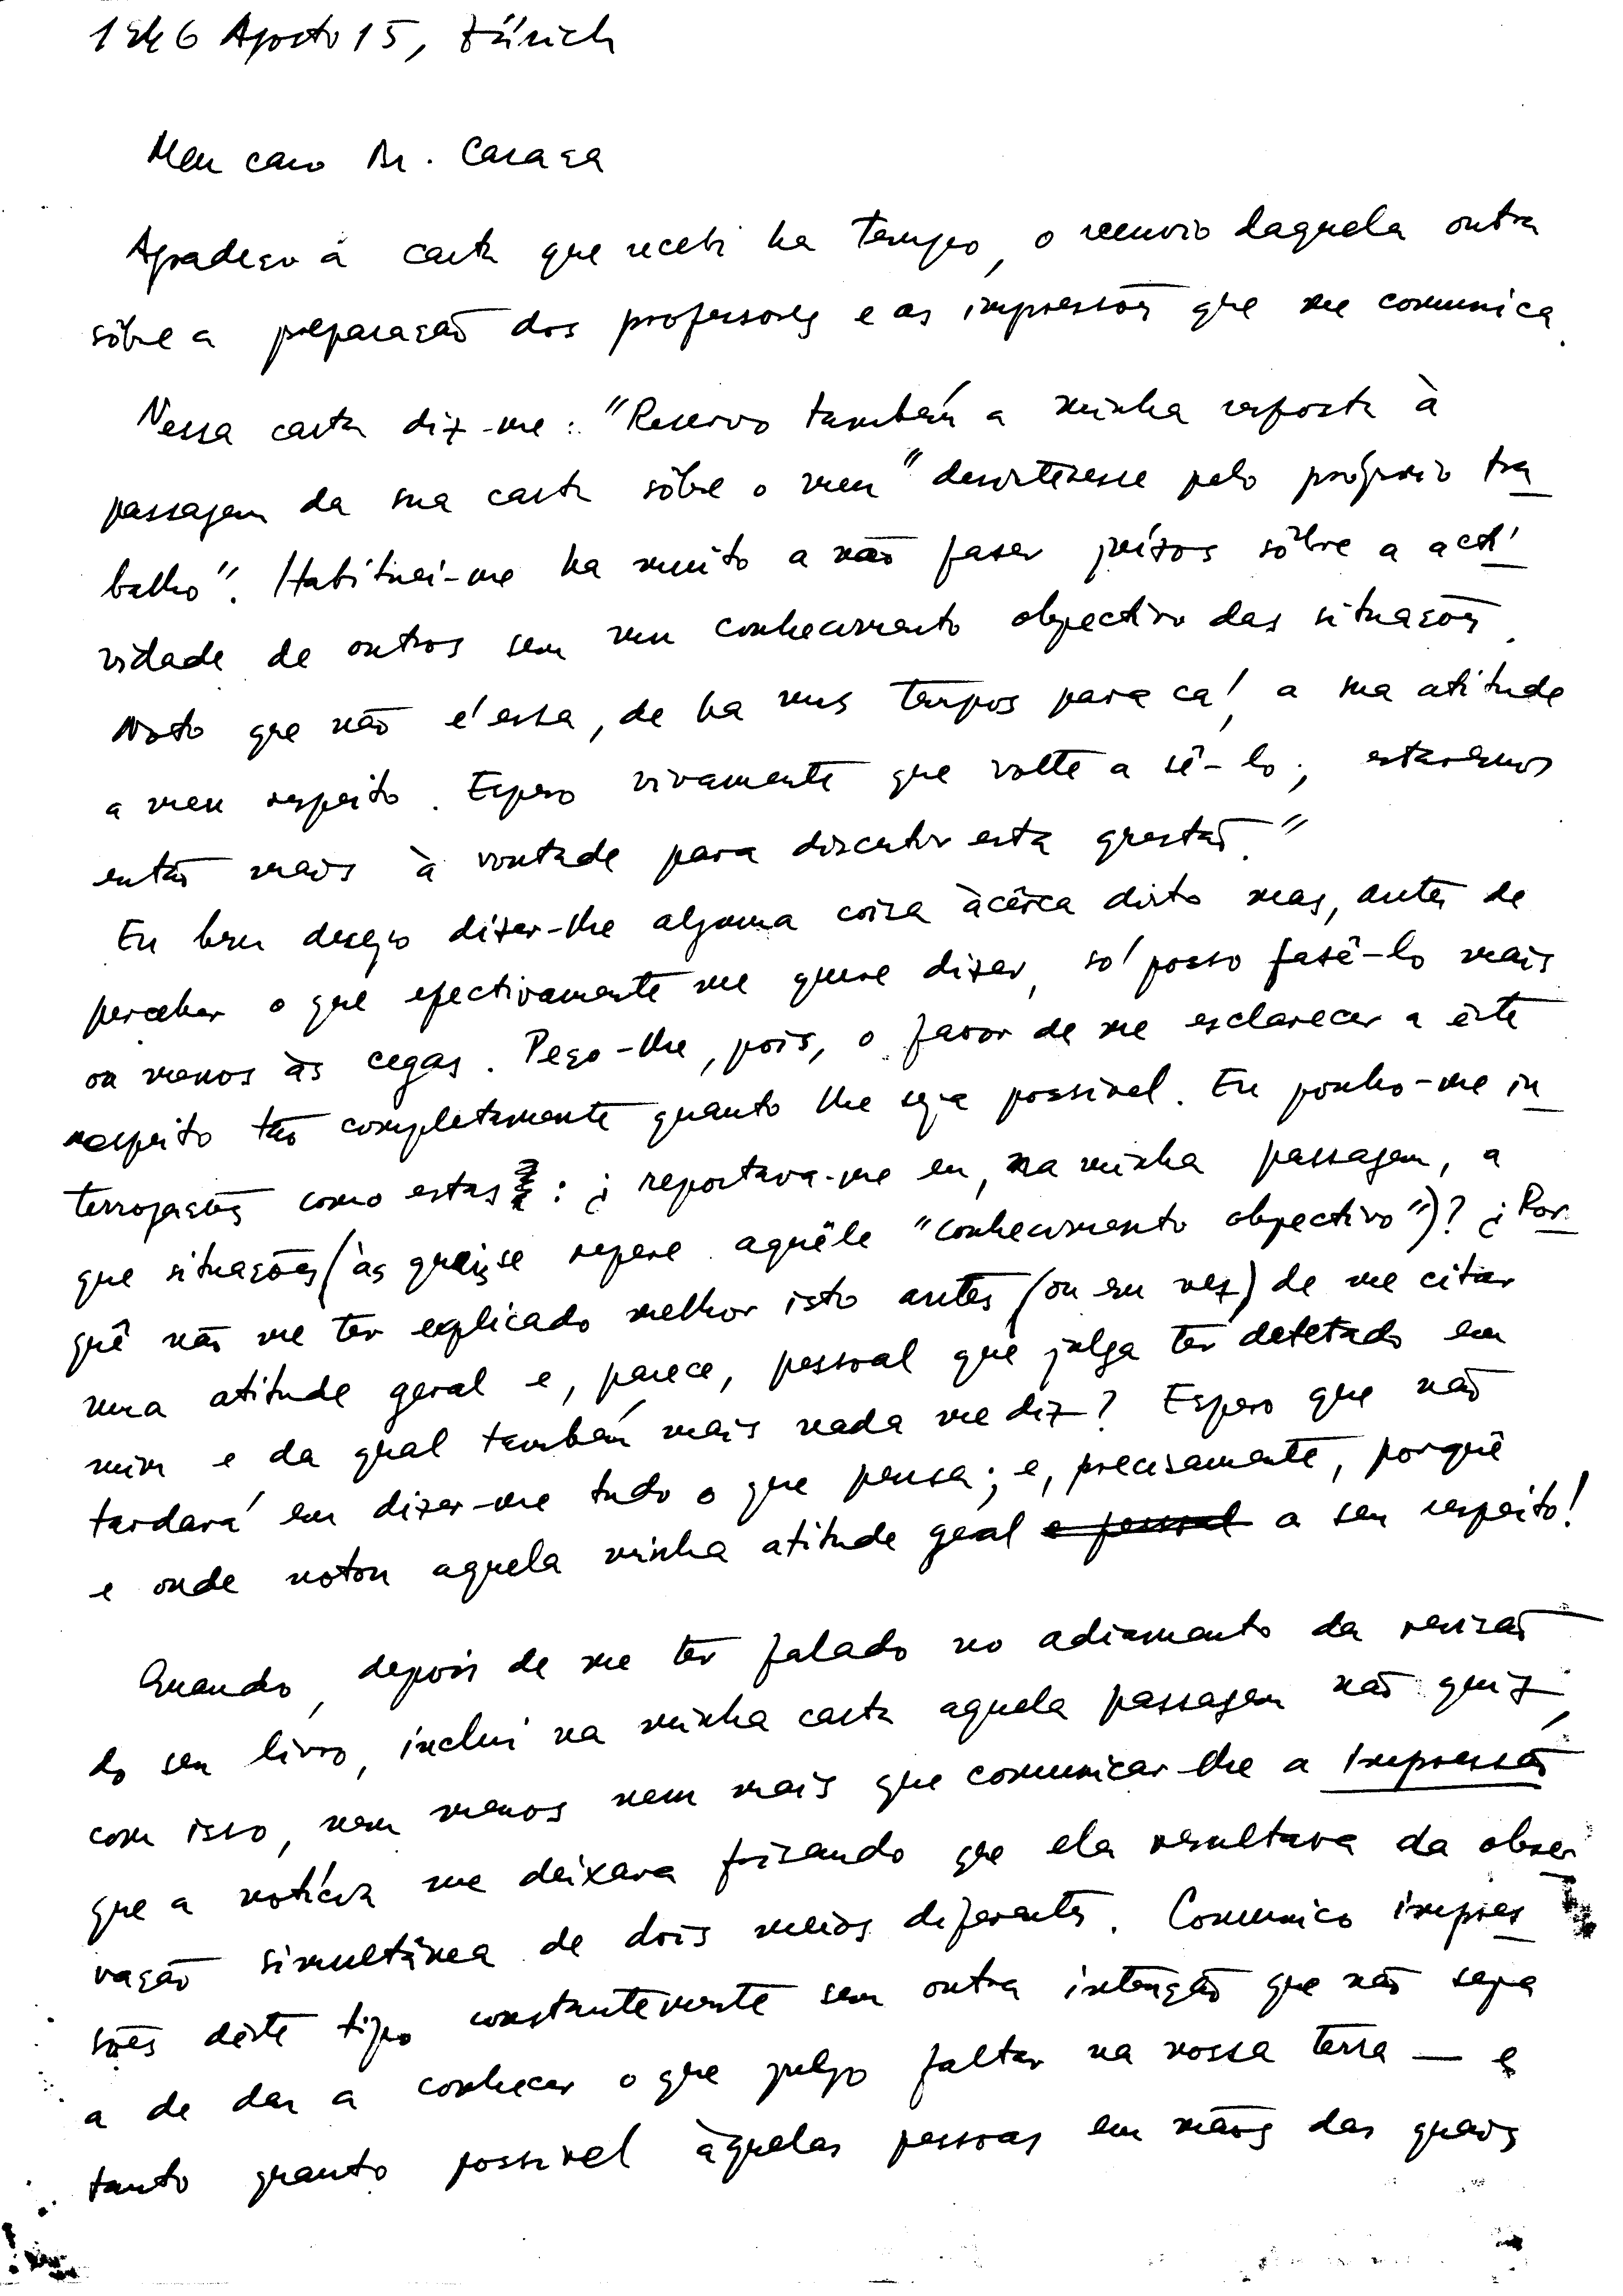 1946 Agosto 15, Zürich
Meu caro Dr. Caraça
Agradeço a carta que recebi ha tempo, o reenvio daquela outra
sôbre a preparação dos professores e as impressões que me comunica.
Nessa carta diz-me: "Reservo também a minha resposta à
passagem da sua carta sôbre o meu "desinteresse pelo próprio tra
balho". Habituei-me ha muito a não fazer juízos sôbre a acti
vidade de outros sem um conhecimento objectivo das situações.
Noto que não é essa, de ha uns tempos para cá, a sua atitude
a meu respeito. Espero vivamente que volte a sê-lo; estaremos
então mais à vontade para discutir esta questão."
Eu bem desejo dizer-lhe alguma coisa àcêrca disto mas, antes de
perceber o que efectivamente me quere dizer, só posso fazê-lo mais
ou menos às cegas. Peço-lhe, pois, o favor de me esclarecer a êste
respeito tão completamente quanto lhe seja possível. Eu ponho-me in
terrogações como estas: ¿ reportava-me eu, na minha passagem, a
que situações (às quais se refere aquêle "conhecimento objectivo")? ¿ Por
quê não me ter explicado melhor isto antes (ou em vez) de me citar
uma atitude geral e, parece, pessoal que julga ter detetado em
mim e da qual também mais nada me diz? Espero que não
tardará em dizer-me tudo o que pensa; e, precisamente, porquê
e onde notou aquela minha atitude geral e pessoal a seu respeito!
Quando, depois de me ter falado no adiamento da revisão
do seu livro, incluí na minha carta aquela passagem não quiz,
com isso, nem menos nem mais que comunicar-lhe a impressão
que a notícia me deixara frisando que ela resultava da obser
vação simultânea de dois meios diferentes. Comunico impres
sões dêste tipo constantemente sem outra intenção que não seja
a de dar a conhecer o que julgo faltar na nossa terra — e
tanto quanto possível àquelas pessoas em mãos das quais